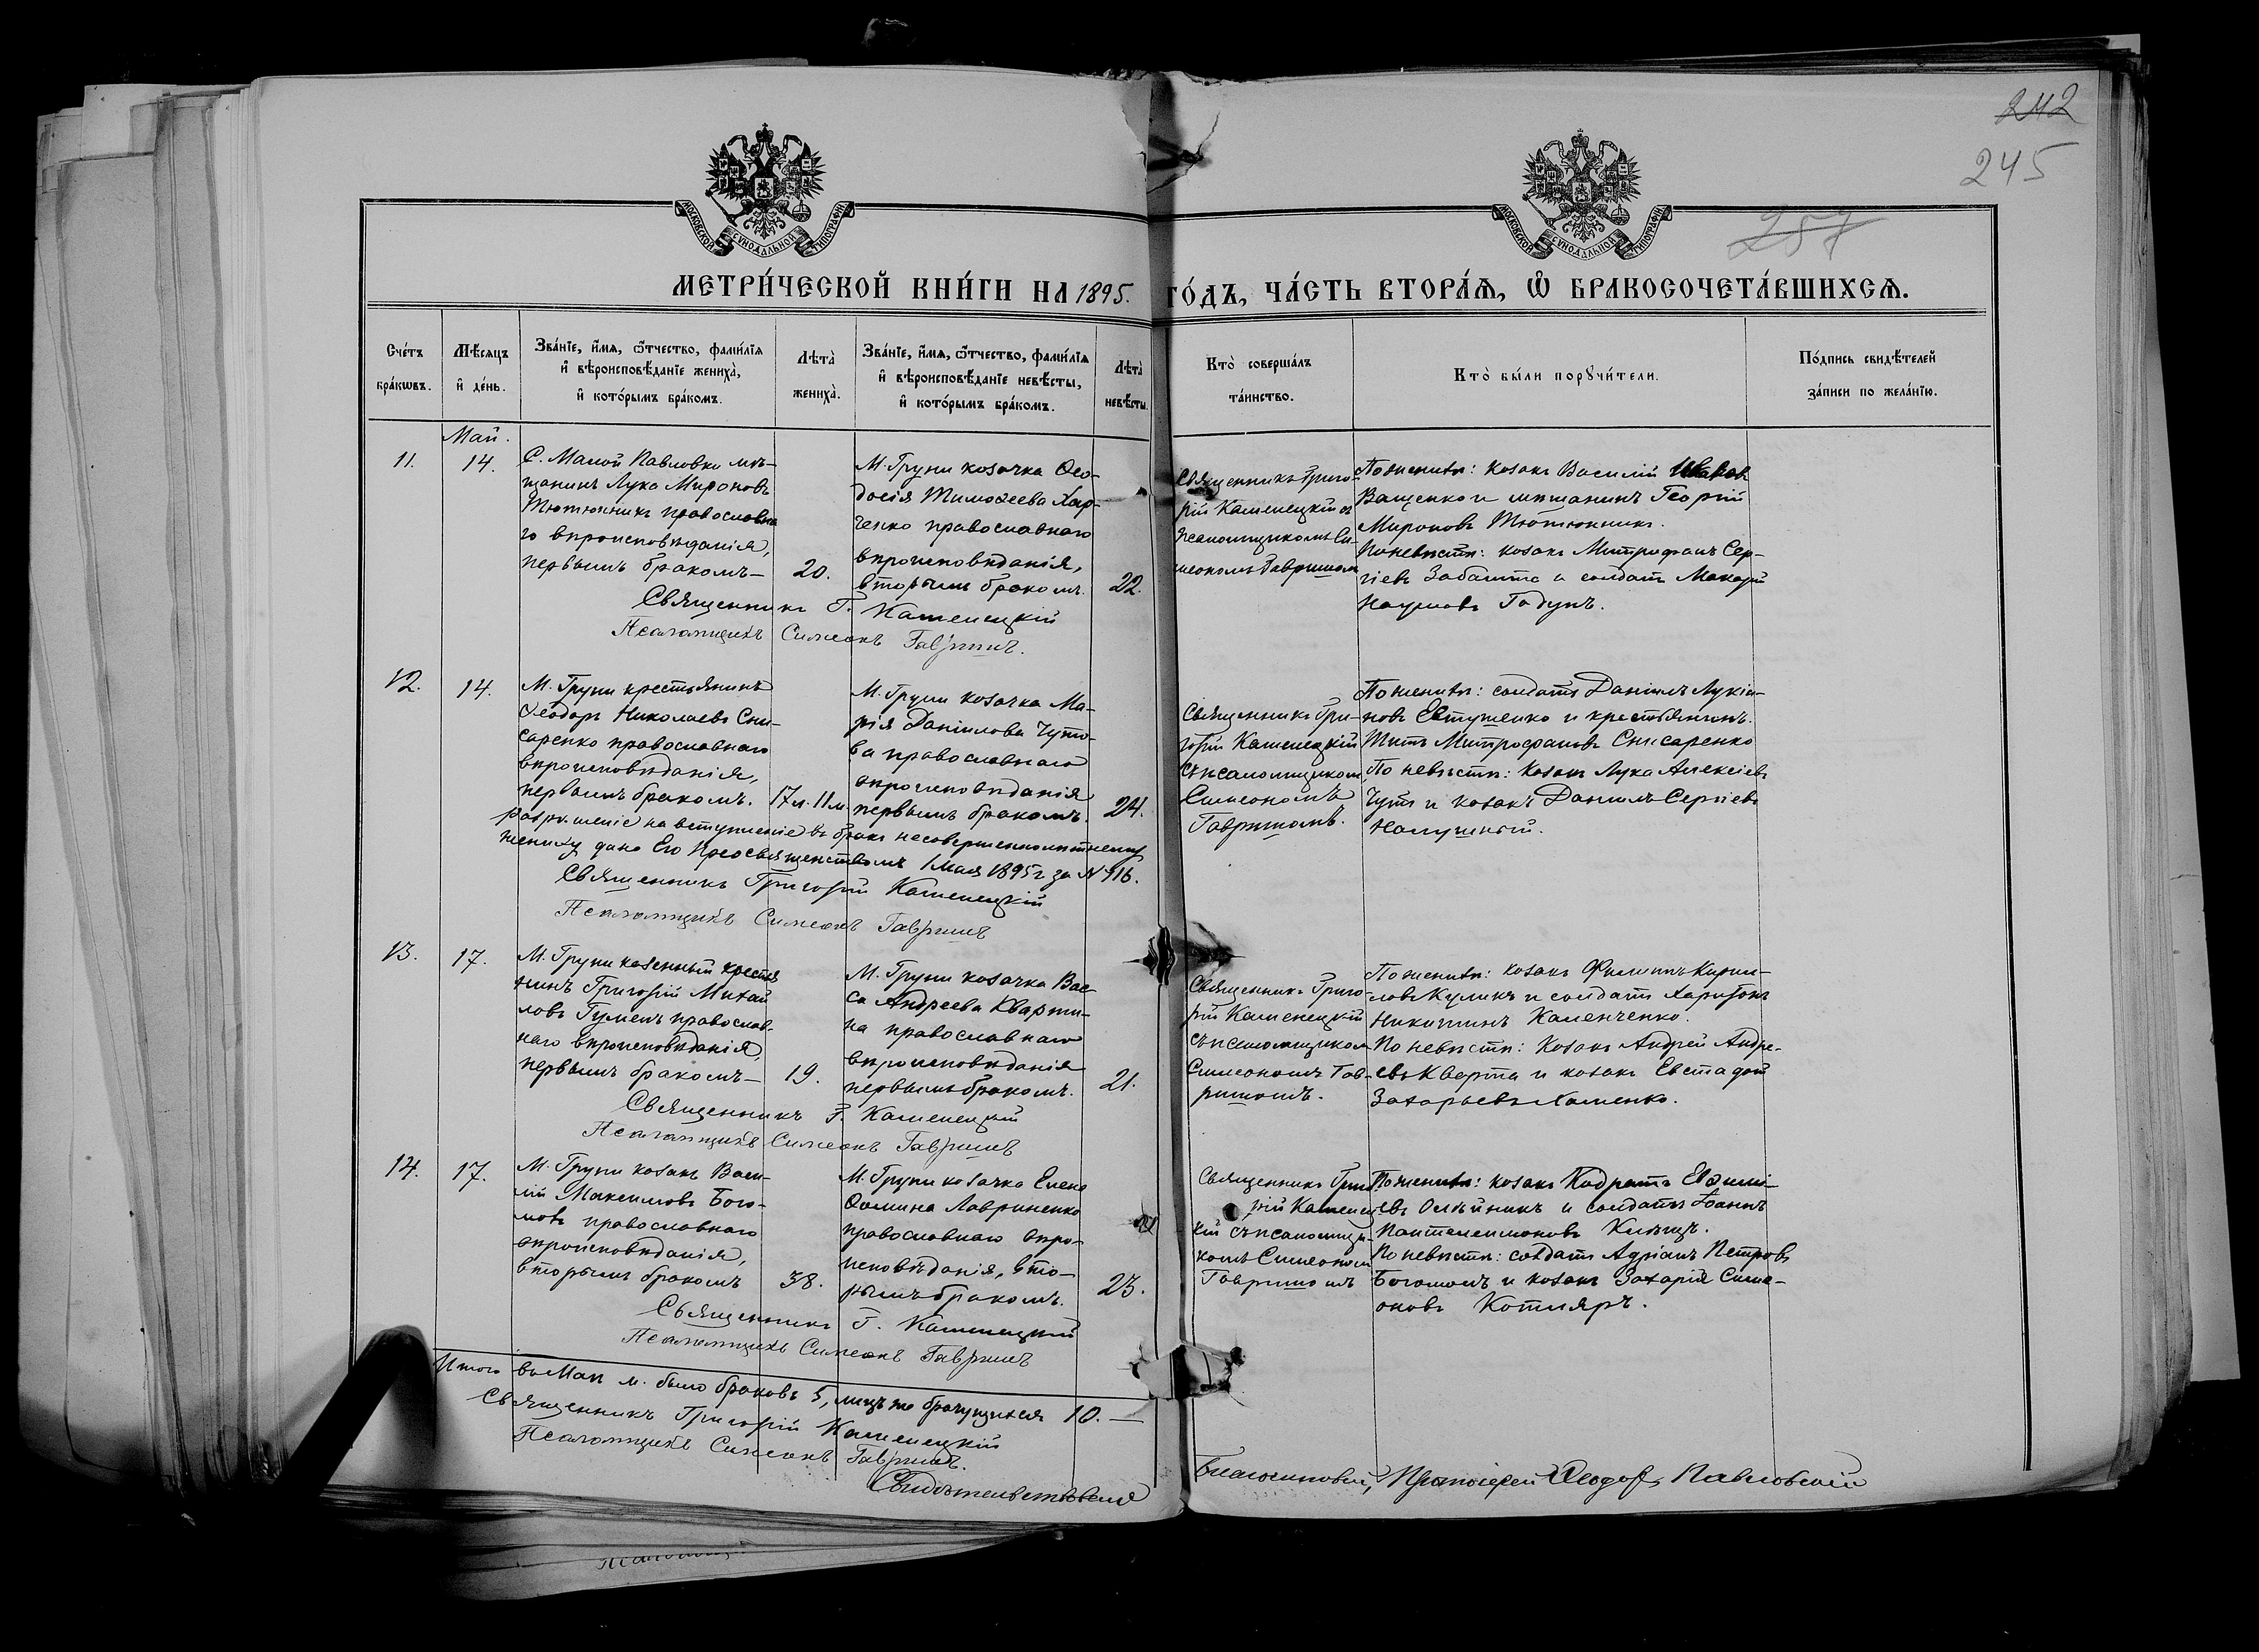 242
245
257
МОСКОВСКОЙ СУНОДАЛЬНОЙ ТИПОГРАФІИ
МОСКОВСКОЙ СУНОДАЛЬНОЙ ТИПОГРАФІИ
МЕТРИ́ЧЕСКОЙ КНИ́ГИ НА 1895. ГО́ДЪ, ЧА́СТЬ ВТОРА́Я, Ѡ҆ БРАКОСОЧЕТА́ВШИХСЯ.
Сче́тъ
бра́кѡвъ.
Мѣ́сяцъ
и҆ де́нь.
Зва́нїе, и҆́мя, ѻ҆́тчество, фами́лїя
и҆ вѣроисповѣ́данїе жениха̀,
и҆ кото́рымъ бра́комъ.
Лѣта̀
жениха̀.
Зва́нїе, и҆́мя, ѻ҆́тчество, фами́лїя
и҆ вѣроисповѣ́данїе невѣ́сты,
и҆ кото́рымъ бра́комъ.
Лѣта̀
невѣ́сты.
Кто̀ соверша́лъ
та́инство.
Кто̀ бы́ли порꙋчи́тели.
По́дпись свидѣ́телей
за́писи по жела́нїю.
Май.
11.
14.
С. Малой Павловки мѣ-
щанинъ Лука Мироновъ
Тютюнникъ православна
го вѣроисповѣданія,
первымъ бракомъ—
20.
М. Груни козачка Ѳео-
досія Тимоѳеева Хар-
ченко православнаго
вѣроисповѣданія,
вторымъ бракомъ.
22.
Священникъ Григо-
рій Каменецкій съ
псаломщикомъ Си-
меономъ Гавришом
По женихѣ: козакъ Василій Иванов
Ващенко и мѣщанинъ Георгій
Мироновъ Тютюнникъ.
По невѣстѣ: козакъ Митрофанъ Сер-
гіевъ Забашта и солдатъ Макарій
Наумовъ Годунъ.
Священникъ Г. Каменецкій
Псаломщикъ Симеонъ Гавришъ.
12.
14.
М. Груни крестьянинъ
Ѳеодоръ Николаевъ Сни-
саренко православнаго
вѣроисповѣданія,
первымъ бракомъ.
17 л. 11 м.
М. Груни козачка Ма-
рія Даніилова Чуто-
ва православнаго
вѣроисповѣданія
первымъ бракомъ.
24.
Священникъ Гри-
горій Каменецкій
съ псаломщиком
Симеономъ
Гавришомъ.
По женихѣ: солдатъ Даніилъ Лукія-
новъ Евтушенко и крестьянинъ
Титъ Митрофановъ Снисаренко
По невѣстѣ: козакъ Лука Алексіевъ
Чутъ и козакъ Даніилъ Сергіевъ
разрѣшеніе на вступленіе въ бракъ несовершеннолѣтнему
жениху дано Его Преосвященствомъ 1 Мая 1895 г за № 916.
Священникъ Григорій Каменецкій
Псаломщикъ Симеонъ Гавришъ
13.
17.
М. Груни казенный крестья
нинъ Григорій Михай
ловъ Гуменъ православ-
наго вѣроисповѣданія,
первымъ бракомъ—
19.
М. Груни козачка Вас
са Андреева Кварти-
на православнаго
вѣроисповѣданія
первымъ бракомъ.
21.
Священникъ Григо-
рій Каменецкій
съ псаломщиком
Симеономъ Гав-
ришомъ.
По женихѣ: козакъ Филиппъ Кирил-
ловъ Куликъ и солдатъ Харитонъ
Никитинъ Каменченко.
По невѣстѣ: козакъ Андрей Андре-
евъ Кварта и козакъ Евстафій
Захарьевъ Хоменко.
Священникъ Г. Каменецкій
Псаломщикъ Симеонъ Гавришъ
14.
17.
М. Груни козакъ Васи-
лій Максимовъ Бого-
молъ православнаго
вѣроисповѣданія,
вторымъ бракомъ
38.
М. Груни козачка Елена
Ѳомина Лавриненко
православнаго вѣро-
исповѣданія, вто-
рымъ бракомъ.
23.
Священникъ Григо
рій Каменец
кій съ псаломщи-
комъ Симеоном
Гавришомъ
По женихѣ: козакъ Кодратъ Евѳимі-
евъ Олѣйникъ и солдатъ Іоаннъ
Пантелеимоновъ Кияшъ.
По невѣстѣ: солдатъ Адріанъ Петровъ
Богомолъ и козакъ Захарій Симе-
оновъ Котляръ.
Священникъ Г. Каменецкій
Псаломщикъ Симеонъ Гавришъ
Итого въ Маѣ м. было браковъ 5, лицъ же брачущихся 10.—
Священникъ Григорій Каменецкій
Псаломщикъ Симеонъ Гавришъ.
Благочинный, Протоіерей Ѳеодоръ Павловскій